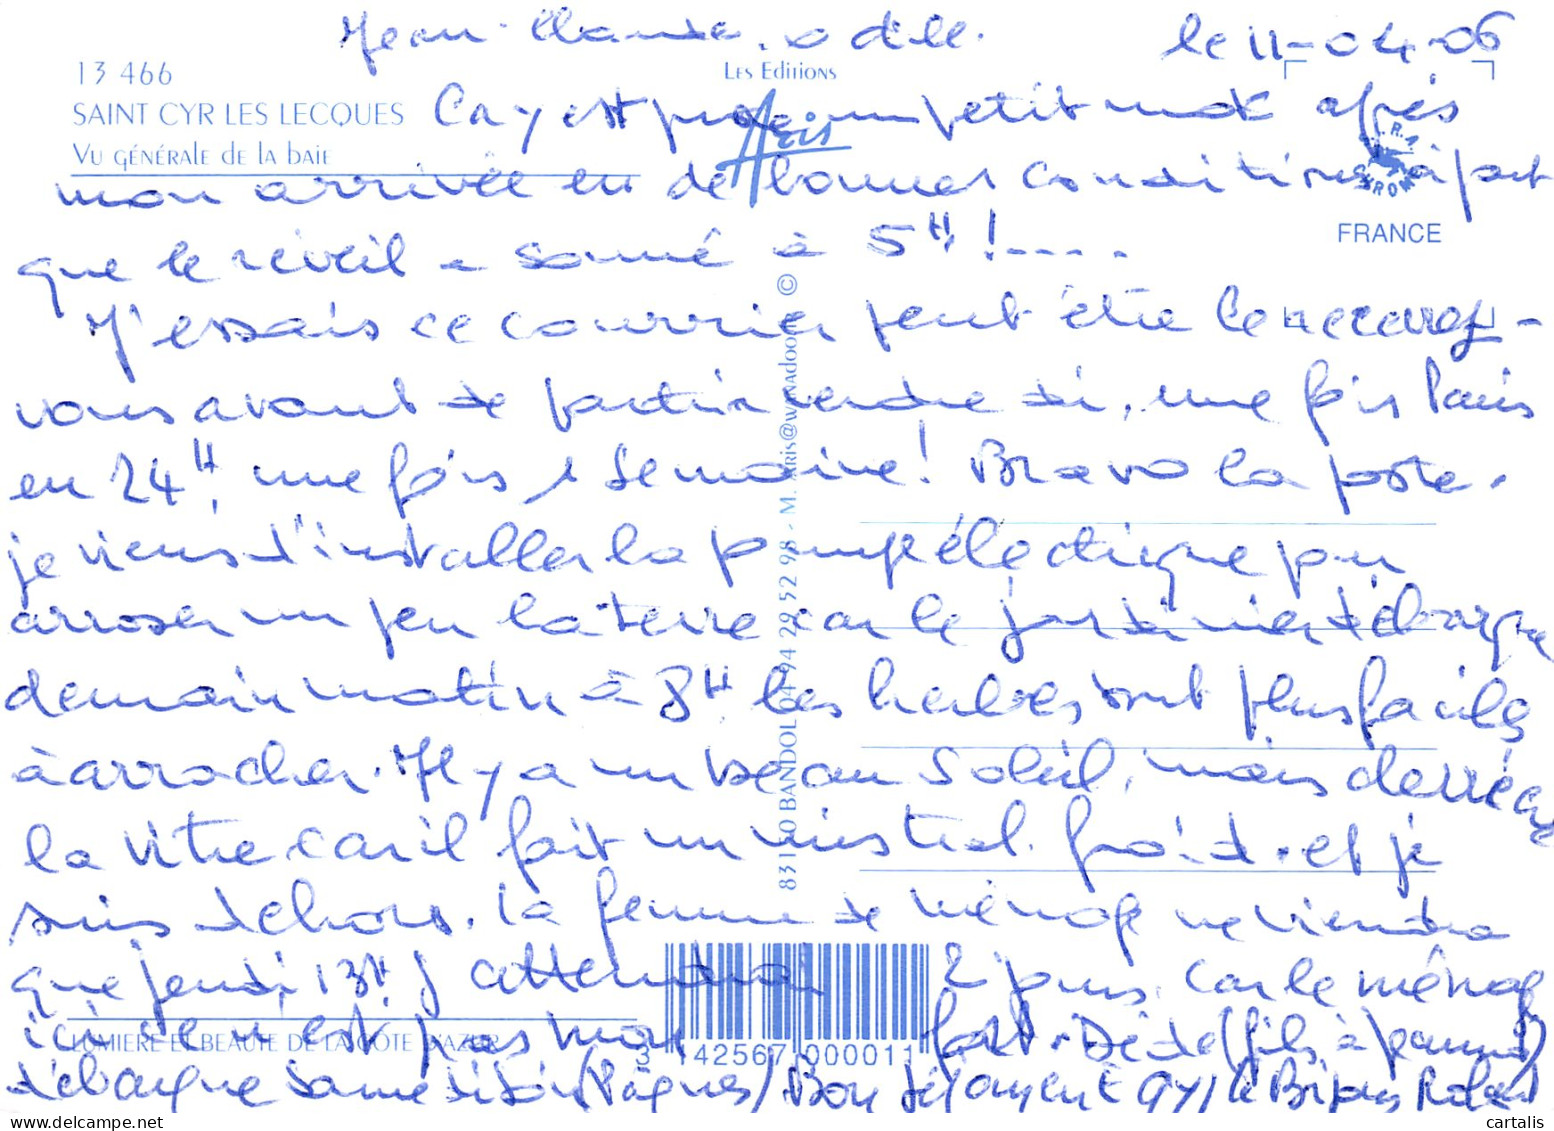 Jean-Claude, Odile. le 11-04-06
13 466
Les Editions
Aris
SAINT CYR LES LECQUES
Vu générale de la baie
FRANCE
Ca y est pr un petit mot après
mon arrivée en de bonnes conditions à part
que le réveil a sonné à 5H !----
J'essais ce courrier peut être le recevez-
vous avant de partir vendredi, une fois Paris
en 24H, une fois 1 semaine! Bravo la poste.
je viens d'installer la pompe électrique pr
arroser un peu la terre car le jardinier débarque
demain matin à 8H les herbes sont plus faciles
à arracher. Il y a un beau soleil, mais derrière
la vitre car il fait un mistral froid. et je
suis dehors. la femme de ménage ne viendra
que jeudi 13H. j attendrai 2 jours, car le ménage
ici ce n est pas mon fort. Dédé (fils à
débarque samedi soir (Pâques) Bon
83150 BANDOL 04 94 29 52 98 - M. ARIS@WANADOO ©
LUMIERE ET BEAUTE DE LA COTE D'AZUR
3 142567 000011
cartalis